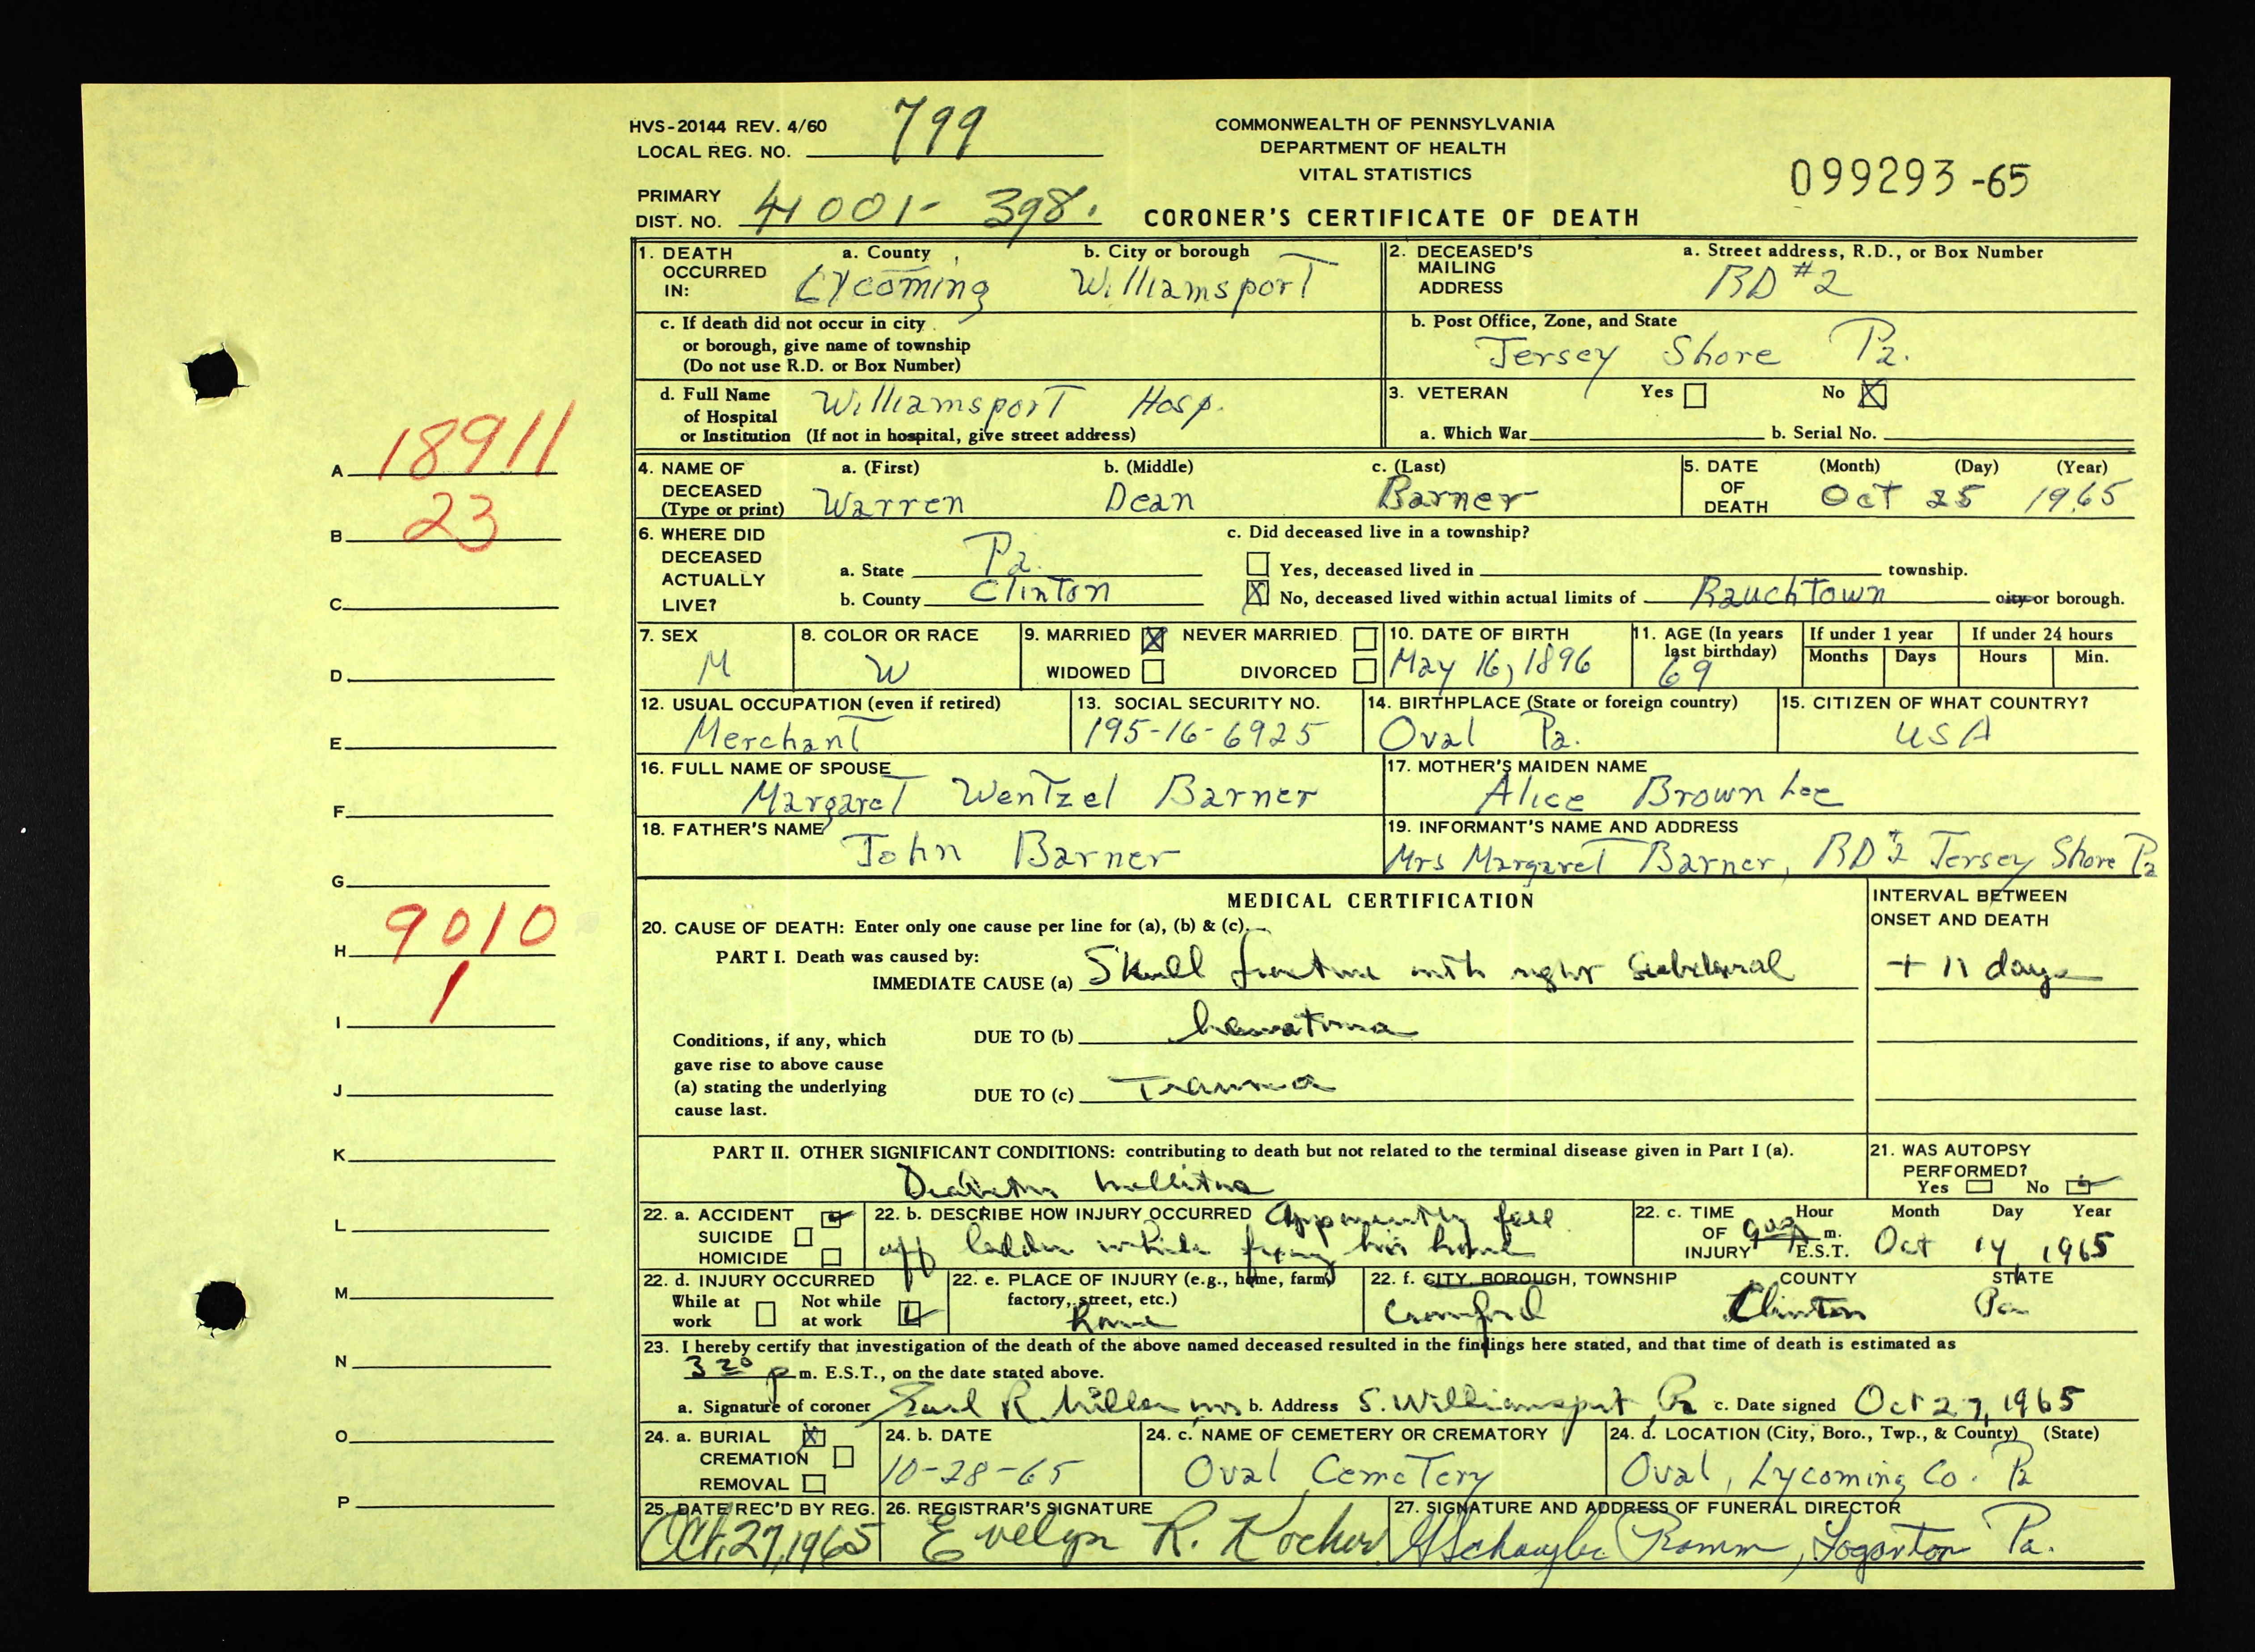 HVS-20144 REV. 4/60
LOCAL REG. NO. 799
PRIMARY
DIST. NO. 41001- 398.
COMMONWEALTH OF PENNSYLVANIA
DEPARTMENT OF HEALTH
VITAL STATISTICS
CORONER'S CERTIFICATE OF DEATH
099293-65
1. DEATH OCCURRED IN: a. County Lycoming b. City or borough Williamsport
2. DECEASED'S MAILING ADDRESS a. Street address, R.D., or Box Number RD #2
c. If death did not occur in city
or borough, give name of township
(Do not use R.D. or Box Number)
b. Post Office, Zone, and State
Jersey Shore Pa.
d. Full Name of Hospital or Institution Williamsport Hosp.
(If not in hospital, give street address)
3. VETERAN Yes No X
a. Which War b. Serial No.
4. NAME OF DECEASED (Type or print) a. (First) Warren b. (Middle) Dean c. (Last) Barner
5. DATE OF DEATH (Month) Oct (Day) 25 (Year) 1965
6. WHERE DID DECEASED ACTUALLY LIVE?
a. State Pa.
b. County Clinton
c. Did deceased live in a township?
Yes, deceased lived in township.
X No, deceased lived within actual limits of Rauchtown city or borough.
7. SEX M
8. COLOR OR RACE W
9. MARRIED X NEVER MARRIED
WIDOWED DIVORCED
10. DATE OF BIRTH May 16, 1896
11. AGE (In years last birthday) 69
If under 1 year Months Days
If under 24 hours Hours Min.
12. USUAL OCCUPATION (even if retired) Merchant
13. SOCIAL SECURITY NO. 195-16-6925
14. BIRTHPLACE (State or foreign country) Oval Pa.
15. CITIZEN OF WHAT COUNTRY? USA
16. FULL NAME OF SPOUSE Margaret Wentzel Barner
17. MOTHER'S MAIDEN NAME Alice Brown Lee
18. FATHER'S NAME John Barner
19. INFORMANT'S NAME AND ADDRESS
Mrs Margaret Barner, RD #2 Jersey Shore Pa
MEDICAL CERTIFICATION
INTERVAL BETWEEN ONSET AND DEATH
20. CAUSE OF DEATH: Enter only one cause per line for (a), (b) & (c).
PART I. Death was caused by:
IMMEDIATE CAUSE (a) Skull fracture with right subdural + 11 days
Conditions, if any, which
gave rise to above cause
(a) stating the underlying
cause last.
DUE TO (b) hematoma
DUE TO (c) Trauma
PART II. OTHER SIGNIFICANT CONDITIONS: contributing to death but not related to the terminal disease given in Part I (a).
Diabetes mellitus
21. WAS AUTOPSY PERFORMED?
Yes No
22. a. ACCIDENT
SUICIDE
HOMICIDE
22. b. DESCRIBE HOW INJURY OCCURRED Apparently fell
off ladder while fixing his home
22. c. TIME OF INJURY Hour 9:00 A m. E.S.T. Month Oct Day 14, Year 1965
22. d. INJURY OCCURRED
While at work Not while at work
22. e. PLACE OF INJURY (e.g., home, farm, factory, street, etc.)
home
22. f. CITY, BOROUGH, TOWNSHIP COUNTY STATE
Crawford Clinton Pa
23. I hereby certify that investigation of the death of the above named deceased resulted in the findings here stated, and that time of death is estimated as
3 20 p m. E.S.T., on the date stated above.
a. Signature of coroner Earl R Miller b. Address S. Williamsport Pa c. Date signed Oct 27, 1965
24. a. BURIAL X
CREMATION
REMOVAL
24. b. DATE 10-28-65
24. c. NAME OF CEMETERY OR CREMATORY Oval Cemetery
24. d. LOCATION (City, Boro., Twp., & County) (State)
Oval, Lycoming Co. Pa
25. DATE REC'D BY REG. Oct. 27, 1965
26. REGISTRAR'S SIGNATURE Evelyn R. Kocher
27. SIGNATURE AND ADDRESS OF FUNERAL DIRECTOR
Ramm, Loganton Pa.
A 18911
B 23
C
D
E
F
G
H 9010
I 1
J
K
L
M
N
O
P